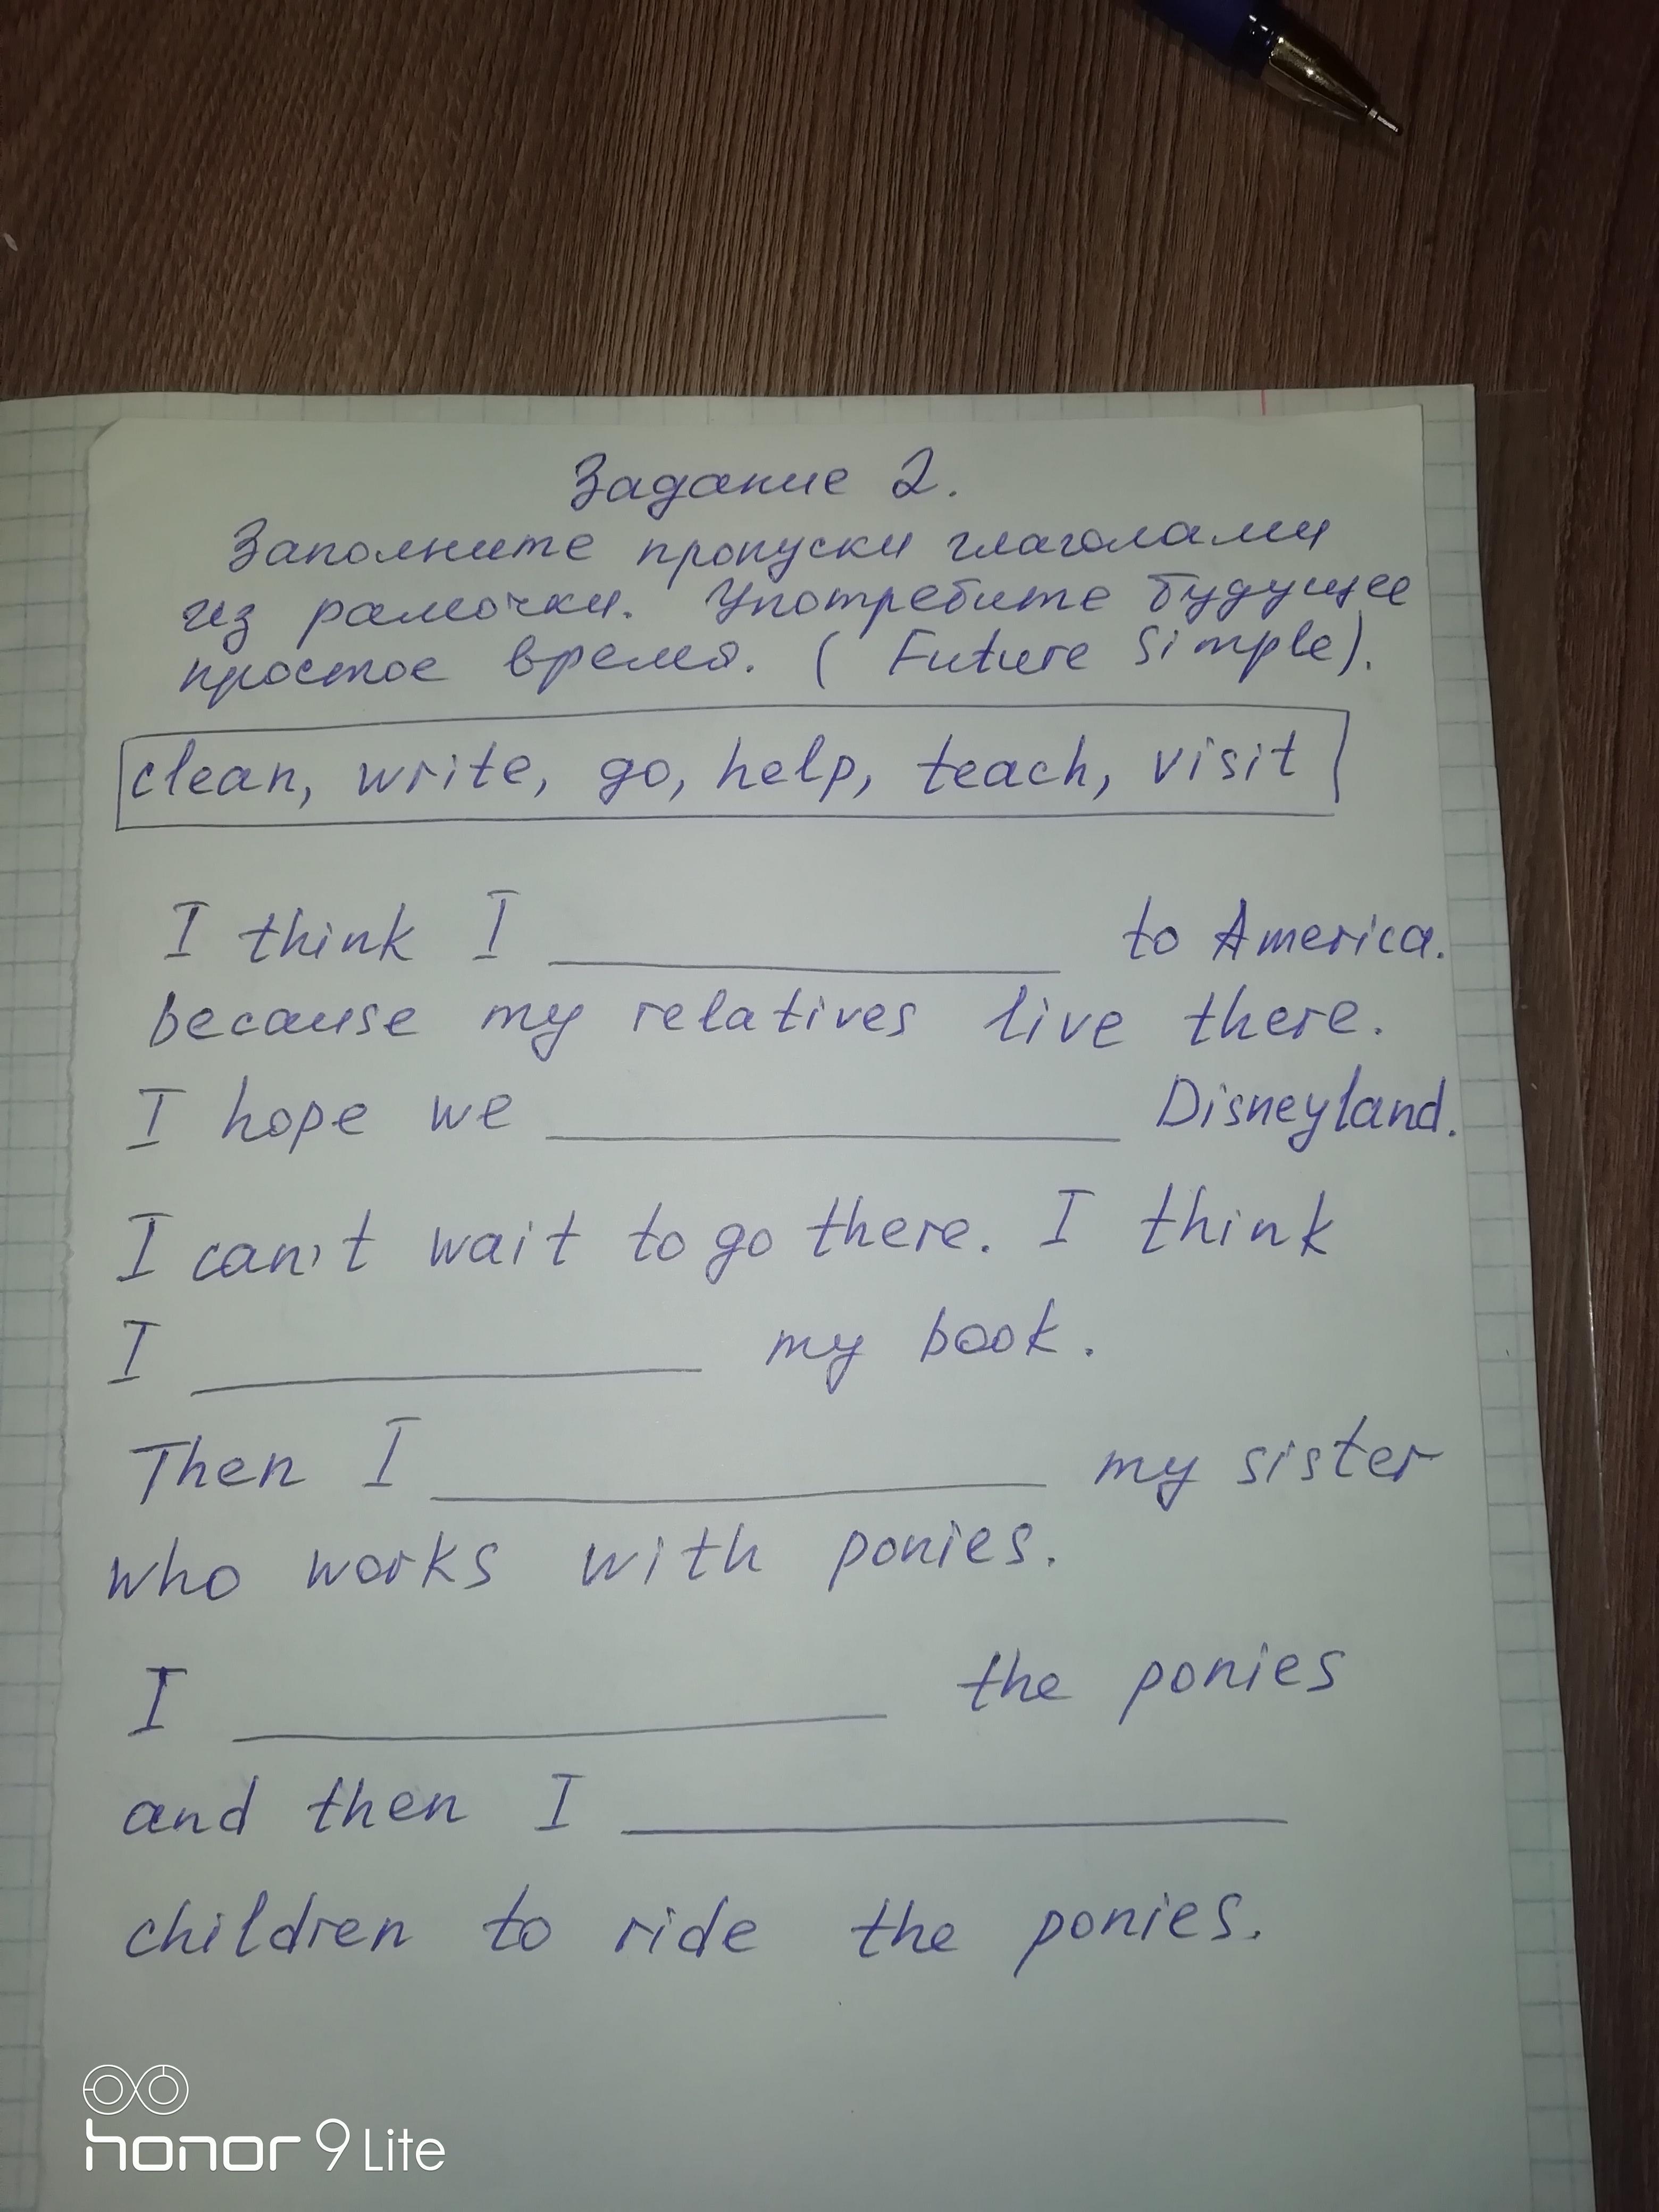 Задание 2.
Заполните пропуски глаголами
из рамочки. Употребите будущее
простое время. ( Future Simple).
clean, write, go, help, teach, visit
I think I __________ to America.
because my relatives live there.
I hope we __________ Disneyland.
I can't wait to go there. I think
I __________ my book.
Then I __________ my sister
who works with ponies.
I __________ the ponies
and then I __________
children to ride the ponies.
honor 9 Lite